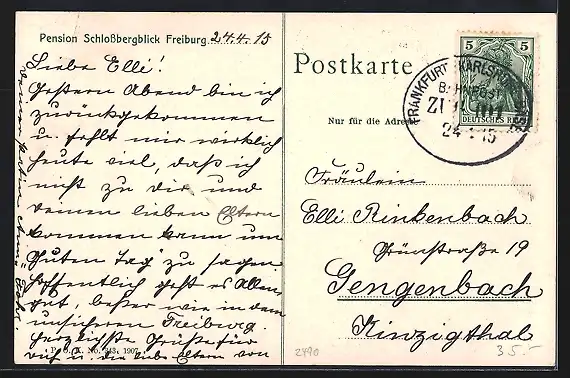 Pension Schloßbergblick Freiburg 24.4.15
Liebe Elli!
Gestern Abend bin ich
zurückgekommen
u. fehlt mir wirklich
heute viel, daß ich
nicht zu dir und
deinen lieben Eltern
kommen kann um
"Guten Tag" zu sagen
Hoffentlich geht es Allen
gut, besser wie in dem
unsicheren Freiburg.
Herzlichste Grüße für
dich u. die liebe Eltern von
P. C. K. No. 343. 1907
Postkarte
Nur für die Adresse
5 5
DEUTSCHES REICH
FRANKFURT KARLSRUHE
BAHNPOST
ZUG
24 4 15
Fräulein
Elli Rinkenbach
Grünstraße 19
Gengenbach
Kinzigthal
2490
35.-